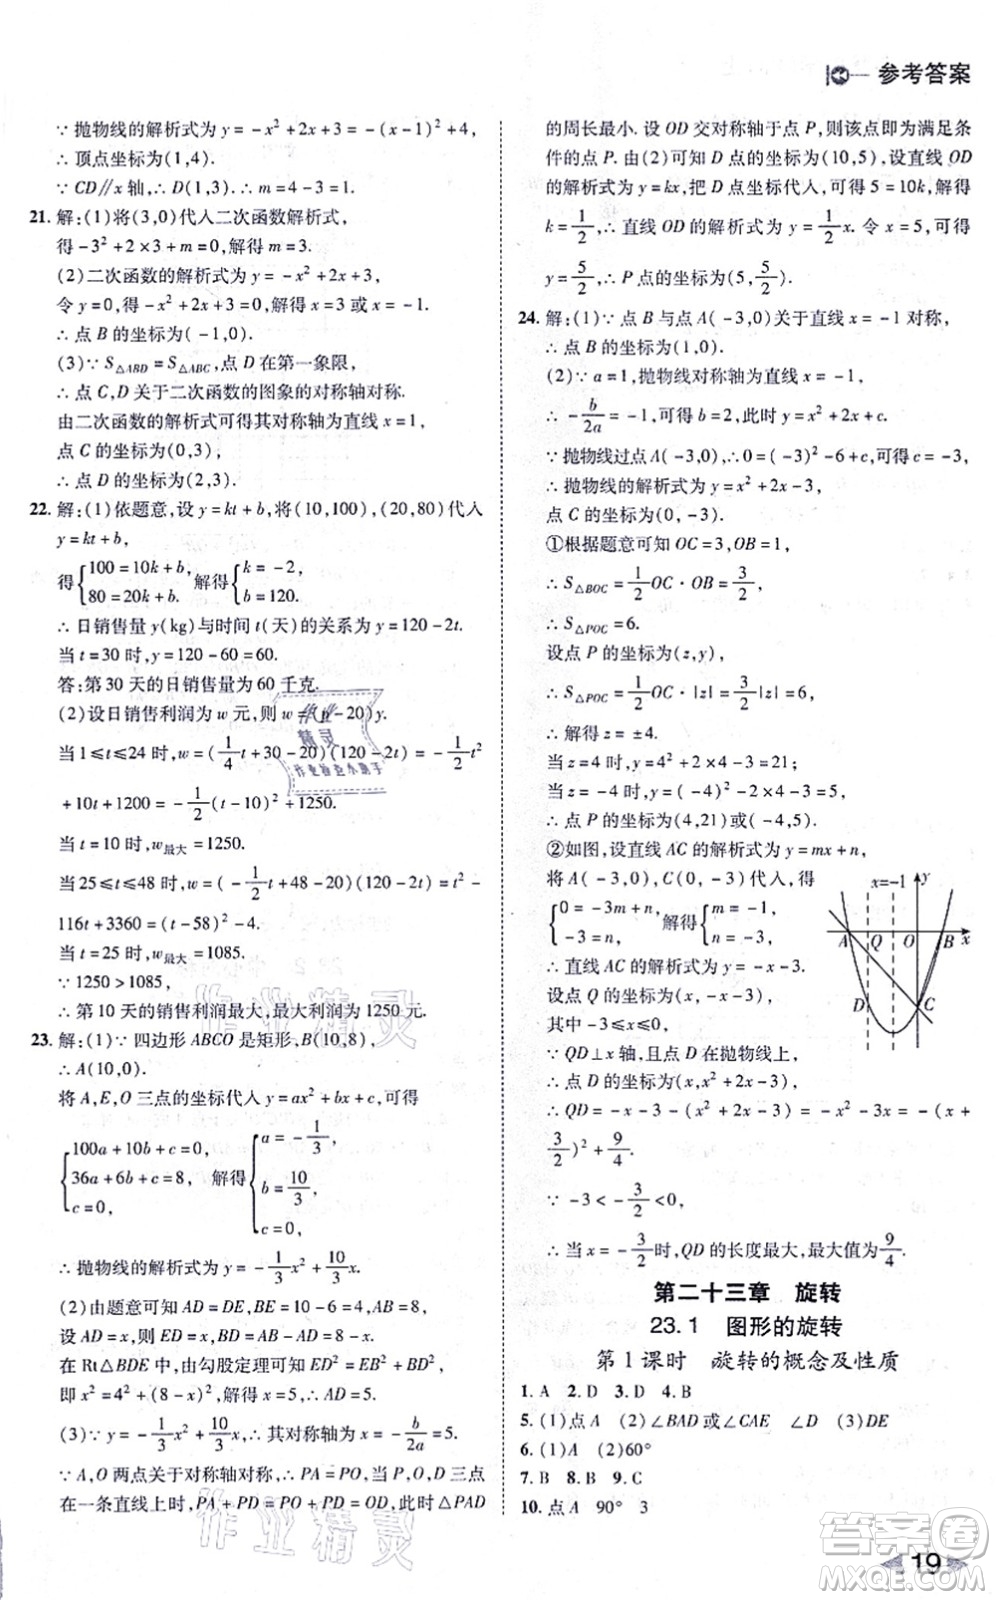 参考答案
∵抛物线的解析式为y=-x²+2x+3=-(x-1)²+4,
∴顶点坐标为(1,4).
∵CD∥x轴,∴D(1,3).∴m=4-3=1.
21. 解:(1)将(3,0)代入二次函数解析式,
得-3²+2×3+m=0,解得m=3.
(2)二次函数的解析式为y=-x²+2x+3,
令y=0,得-x²+2x+3=0,解得x=3或x=-1.
∴点B的坐标为(-1,0).
(3)∵S△ABD=S△ABC,点D在第一象限,
∴点C,D关于二次函数的图象的对称轴对称.
由二次函数的解析式可得其对称轴为直线x=1,
点C的坐标为(0,3),
∴点D的坐标为(2,3).
22. 解:(1)依题意,设y=kt+b,将(10,100),(20,80)代入
y=kt+b,
得{100=10k+b, 80=20k+b. 解得{k=-2, b=120.
∴日销售量y(kg)与时间t(天)的关系为y=120-2t.
当t=30时,y=120-60=60.
答:第30天的日销售量为60千克.
(2)设日销售利润为w元,则w=(p-20)y.
当1≤t≤24时,w=(1/4t+30-20)(120-2t)=-1/2t²
+10t+1200=-1/2(t-10)²+1250.
当t=10时,w最大=1250.
当25≤t≤48时,w=(-1/2t+48-20)(120-2t)=t²-
116t+3360=(t-58)²-4.
当t=25时,w最大=1085.
∵1250>1085,
∴第10天的销售利润最大,最大利润为1250元.
23. 解:(1)∵四边形ABCO是矩形,B(10,8),
∴A(10,0).
将A,E,O三点的坐标代入y=ax²+bx+c,可得
{100a+10b+c=0, 36a+6b+c=8, c=0, 解得{a=-1/3, b=10/3, c=0,
∴抛物线的解析式为y=-1/3x²+10/3x.
(2)由题意可知AD=DE,BE=10-6=4,AB=8,
设AD=x,则ED=x,BD=AB-AD=8-x,
在Rt△BDE中,由勾股定理可知ED²=EB²+BD²,
即x²=4²+(8-x)²,解得x=5,∴AD=5.
(3)∵y=-1/3x²+10/3x,∴其对称轴为x=-b/2a=5.
∵A,O两点关于对称轴对称,∴PA=PO.当P,O,D三点
在一条直线上时,PA+PD=PO+PD=OD,此时△PAD
的周长最小.设OD交对称轴于点P,则该点即为满足条
件的点P.由(2)可知D点的坐标为(10,5),设直线OD
的解析式为y=kx,把D点坐标代入,可得5=10k,解得
k=1/2,∴直线OD的解析式为y=1/2x.令x=5,可得
y=5/2,∴P点的坐标为(5,5/2).
24. 解:(1)∵点B与点A(-3,0)关于直线x=-1对称,
∴点B的坐标为(1,0).
(2)∵a=1,抛物线对称轴为直线x=-1,
∴-b/2a=-1,可得b=2,此时y=x²+2x+c.
∵抛物线过点A(-3,0),∴0=(-3)²-6+c,
解得c=-3.∴抛物线的解析式为y=x²+2x-3,
点C的坐标为(0,-3).
①根据题意可知OC=3,OB=1,
∴S△BOC=1/2OC·OB=3/2,
∴S△POC=6.
设点P的坐标为(z,y),
∴S△POC=1/2OC·|z|=3/2|z|=6,
∴解得z=±4.
当z=4时,y=4²+2×4-3=21;
当z=-4时,y=(-4)²-2×4-3=5.
∴点P的坐标为(4,21)或(-4,5).
②如图,设直线AC的解析式为y=mx+n,
将A(-3,0),C(0,-3)代入,得
{0=-3m+n, -3=n. 解得{m=-1, n=-3.
∴直线AC的解析式为y=-x-3.
设点Q的坐标为(x,-x-3),
其中-3≤x≤0.
∵QD⊥x轴,且点D在抛物线上,
∴点D的坐标为(x,x²+2x-3),
∴QD=-x-3-(x²+2x-3)=-x²-3x=-(x+
3/2)²+9/4.
∵-3<-3/2<0,
∴当x=-3/2时,QD的长度最大,最大值为9/4.
x=-1
y
A
Q
O
B
x
D
C
第二十三章 旋转
23.1 图形的旋转
第1课时 旋转的概念及性质
1. A 2. D 3. D 4. B
5. (1)点A (2)∠BAD或∠CAE ∠D (3)DE
6. (1)A (2)60°
7. B 8. B 9. C
10. 点A 90° 3
作业精灵
作业检查小助手
作业精灵
作业精灵
答案圈
MXQE.COM
19